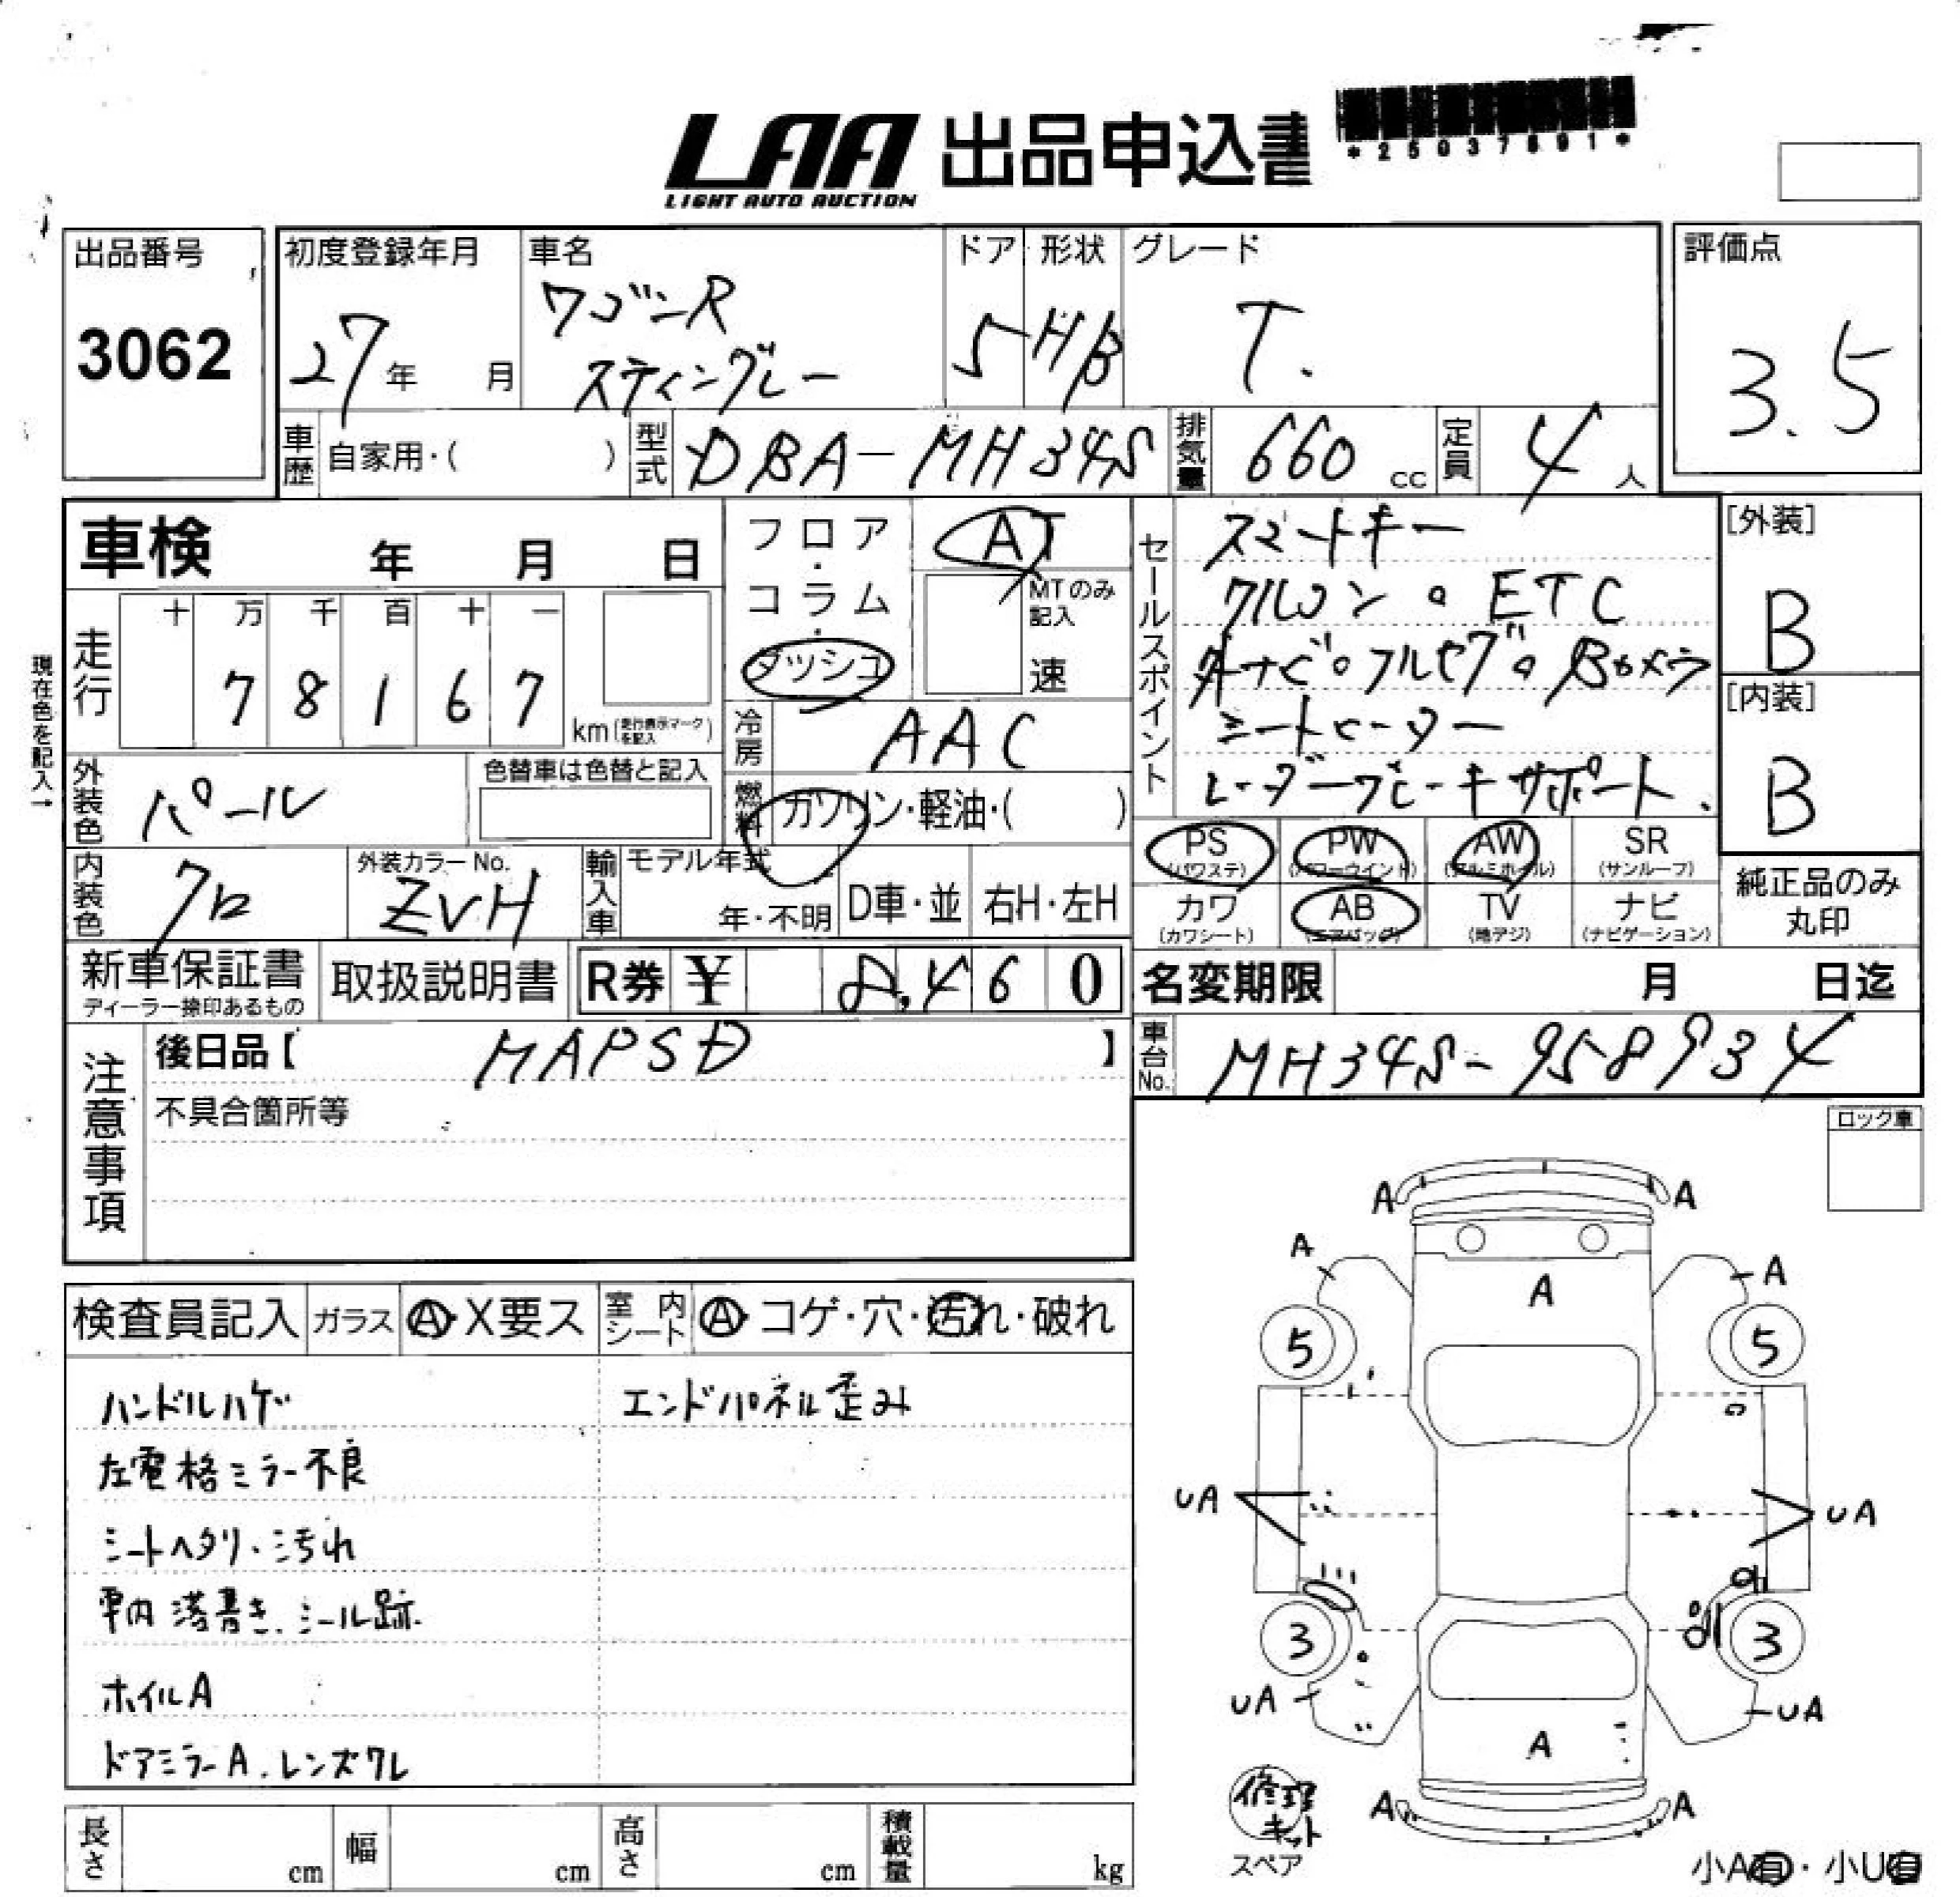 LAA 出品申込書
LIGHT AUTO AUCTION
*25037691*
出品番号
3062
初度登録年月
27年 月
車名
ワゴンR
スティングレー
ドア
5
形状
HB
グレード
T.
評価点
3.5
車歴 自家用・( )
型式 DBA-MH34S
排気量 660 cc
定員 4人
車検 年 月 日
フロア・コラム・ダッシュ
AT
MTのみ記入
速
現在色を記入→
走行
十 万 千 百 十 一
7 8 1 6 7
km(走行表示マークを記入)
冷房 AAC
燃料 ガソリン・軽油・( )
セールスポイント
スマートキー
アルコン。ETC
ナビ。フルセグ。Bカメラ
シートヒーター
レーダーブレーキサポート.
[外装]
B
[内装]
B
外装色 パール
色替車は色替と記入
内装色 クロ
外装カラーNo.
ZVH
輸入車 モデル年式
年・不明
D車・並
右H・左H
PS (パワステ)
PW (パワーウインド)
AW (アルミホイル)
SR (サンルーフ)
カワ (カワシート)
AB (エアバッグ)
TV (地デジ)
ナビ (ナビゲーション)
純正品のみ
丸印
新車保証書
ディーラー捺印あるもの
取扱説明書
R券 ¥ 8,460
名変期限 月 日迄
注意事項
後日品【 MAPSD 】
車台No. MH34S-958934
不具合箇所等
ロック車
検査員記入
ガラス Ⓐ・X要ス
室内シート Ⓐ・コゲ・穴・汚れ・破れ
ハンドルハゲ
エンドパネル歪み
左電格ミラー不良
シートヘタリ・汚れ
車内落書き、シール跡
ホイルA
ドアミラーA.レンズワレ
A A
A A
A
5 5
UA UA
3 3
UA UA
A
A A
修理
キット
スペア
小A有・小U有
長さ cm
幅 cm
高さ cm
積載量 kg